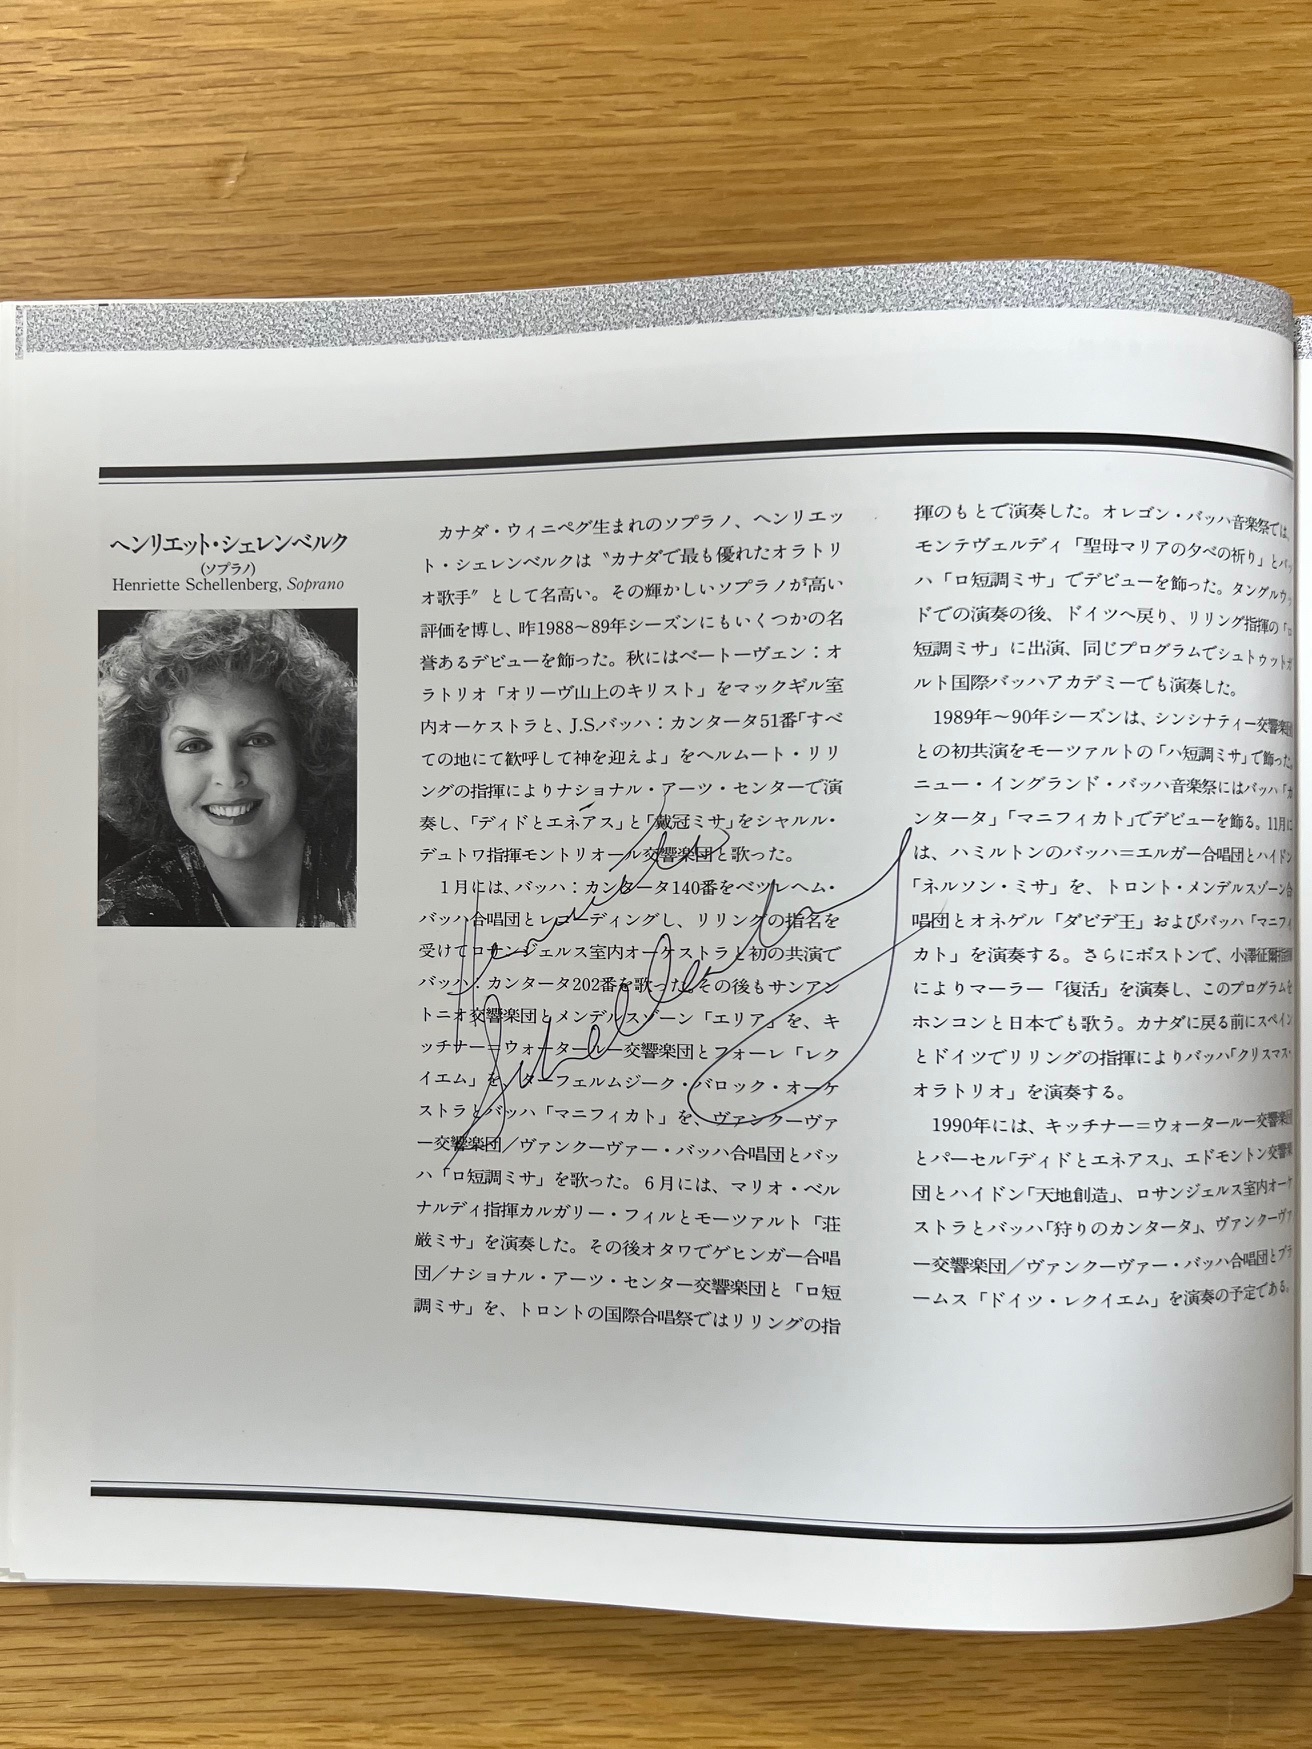 ヘンリエット・シェレンベルク
(ソプラノ)
Henriette Schellenberg, Soprano
カナダ・ウィニペグ生まれのソプラノ、ヘンリエッ
ト・シェレンベルクは〝カナダで最も優れたオラトリ
オ歌手〟として名高い。その輝かしいソプラノが高い
評価を博し、昨1988〜89年シーズンにもいくつかの名
誉あるデビューを飾った。秋にはベートーヴェン：オ
ラトリオ「オリーヴ山上のキリスト」をマックギル室
内オーケストラと、J.S.バッハ：カンタータ51番「すべ
ての地にて歓呼して神を迎えよ」をヘルムート・リリ
ングの指揮によりナショナル・アーツ・センターで演
奏し、「ディドとエネアス」と「戴冠ミサ」をシャルル・
デュトワ指揮モントリオール交響楽団と歌った。
1月には、バッハ：カンタータ140番をベツレヘム・
バッハ合唱団とレコーディングし、リリングの指名を
受けてロサンジェルス室内オーケストラと初の共演で
バッハ：カンタータ202番を歌った。その後もサンアン
トニオ交響楽団とメンデルスゾーン「エリア」を、キ
ッチナー＝ウォータールー交響楽団とフォーレ「レク
イエム」を、ターフェルムジーク・バロック・オーケ
ストラとバッハ「マニフィカト」を、ヴァンクーヴァ
ー交響楽団／ヴァンクーヴァー・バッハ合唱団とバッ
ハ「ロ短調ミサ」を歌った。6月には、マリオ・ベル
ナルディ指揮カルガリー・フィルとモーツァルト「荘
厳ミサ」を演奏した。その後オタワでゲヒンガー合唱
団／ナショナル・アーツ・センター交響楽団と「ロ短
調ミサ」を、トロントの国際合唱祭ではリリングの指
揮のもとで演奏した。オレゴン・バッハ音楽祭では、
モンテヴェルディ「聖母マリアの夕べの祈り」とバッ
ハ「ロ短調ミサ」でデビューを飾った。タングルウッ
ドでの演奏の後、ドイツへ戻り、リリング指揮の「ロ
短調ミサ」に出演、同じプログラムでシュトゥットガ
ルト国際バッハアカデミーでも演奏した。
1989年〜90年シーズンは、シンシナティー交響楽団
との初共演をモーツァルトの「ハ短調ミサ」で飾った。
ニュー・イングランド・バッハ音楽祭にはバッハ「カ
ンタータ」「マニフィカト」でデビューを飾る。11月に
は、ハミルトンのバッハ＝エルガー合唱団とハイドン
「ネルソン・ミサ」を、トロント・メンデルスゾーン合
唱団とオネゲル「ダビデ王」およびバッハ「マニフィ
カト」を演奏する。さらにボストンで、小澤征爾指揮
によりマーラー「復活」を演奏し、このプログラムを
ホンコンと日本でも歌う。カナダに戻る前にスペイン
とドイツでリリングの指揮によりバッハ「クリスマス・
オラトリオ」を演奏する。
1990年には、キッチナー＝ウォータールー交響楽団
とパーセル「ディドとエネアス」、エドモントン交響楽
団とハイドン「天地創造」、ロサンジェルス室内オーケ
ストラとバッハ「狩りのカンタータ」、ヴァンクーヴァ
ー交響楽団／ヴァンクーヴァー・バッハ合唱団とブラ
ームス「ドイツ・レクイエム」を演奏の予定である。